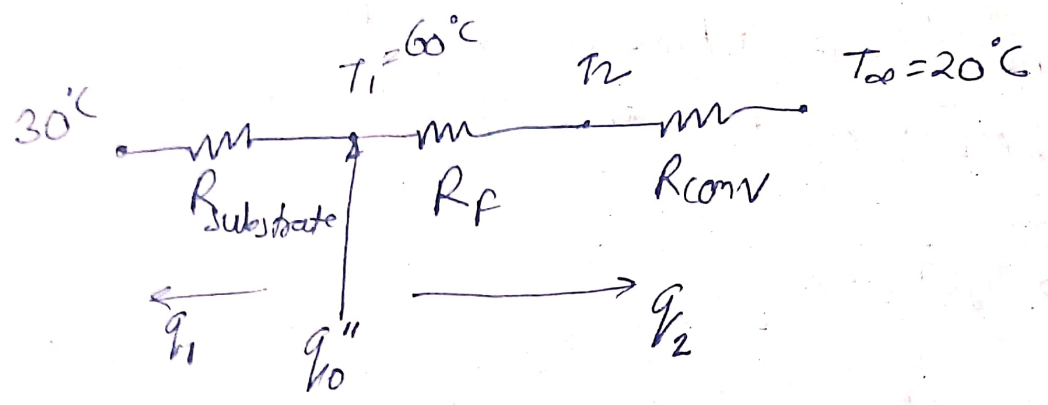 30°C T₁=60°C T2 T∞=20°C
Rsubstrate Rf Rconv
q₁ q₀" q₂